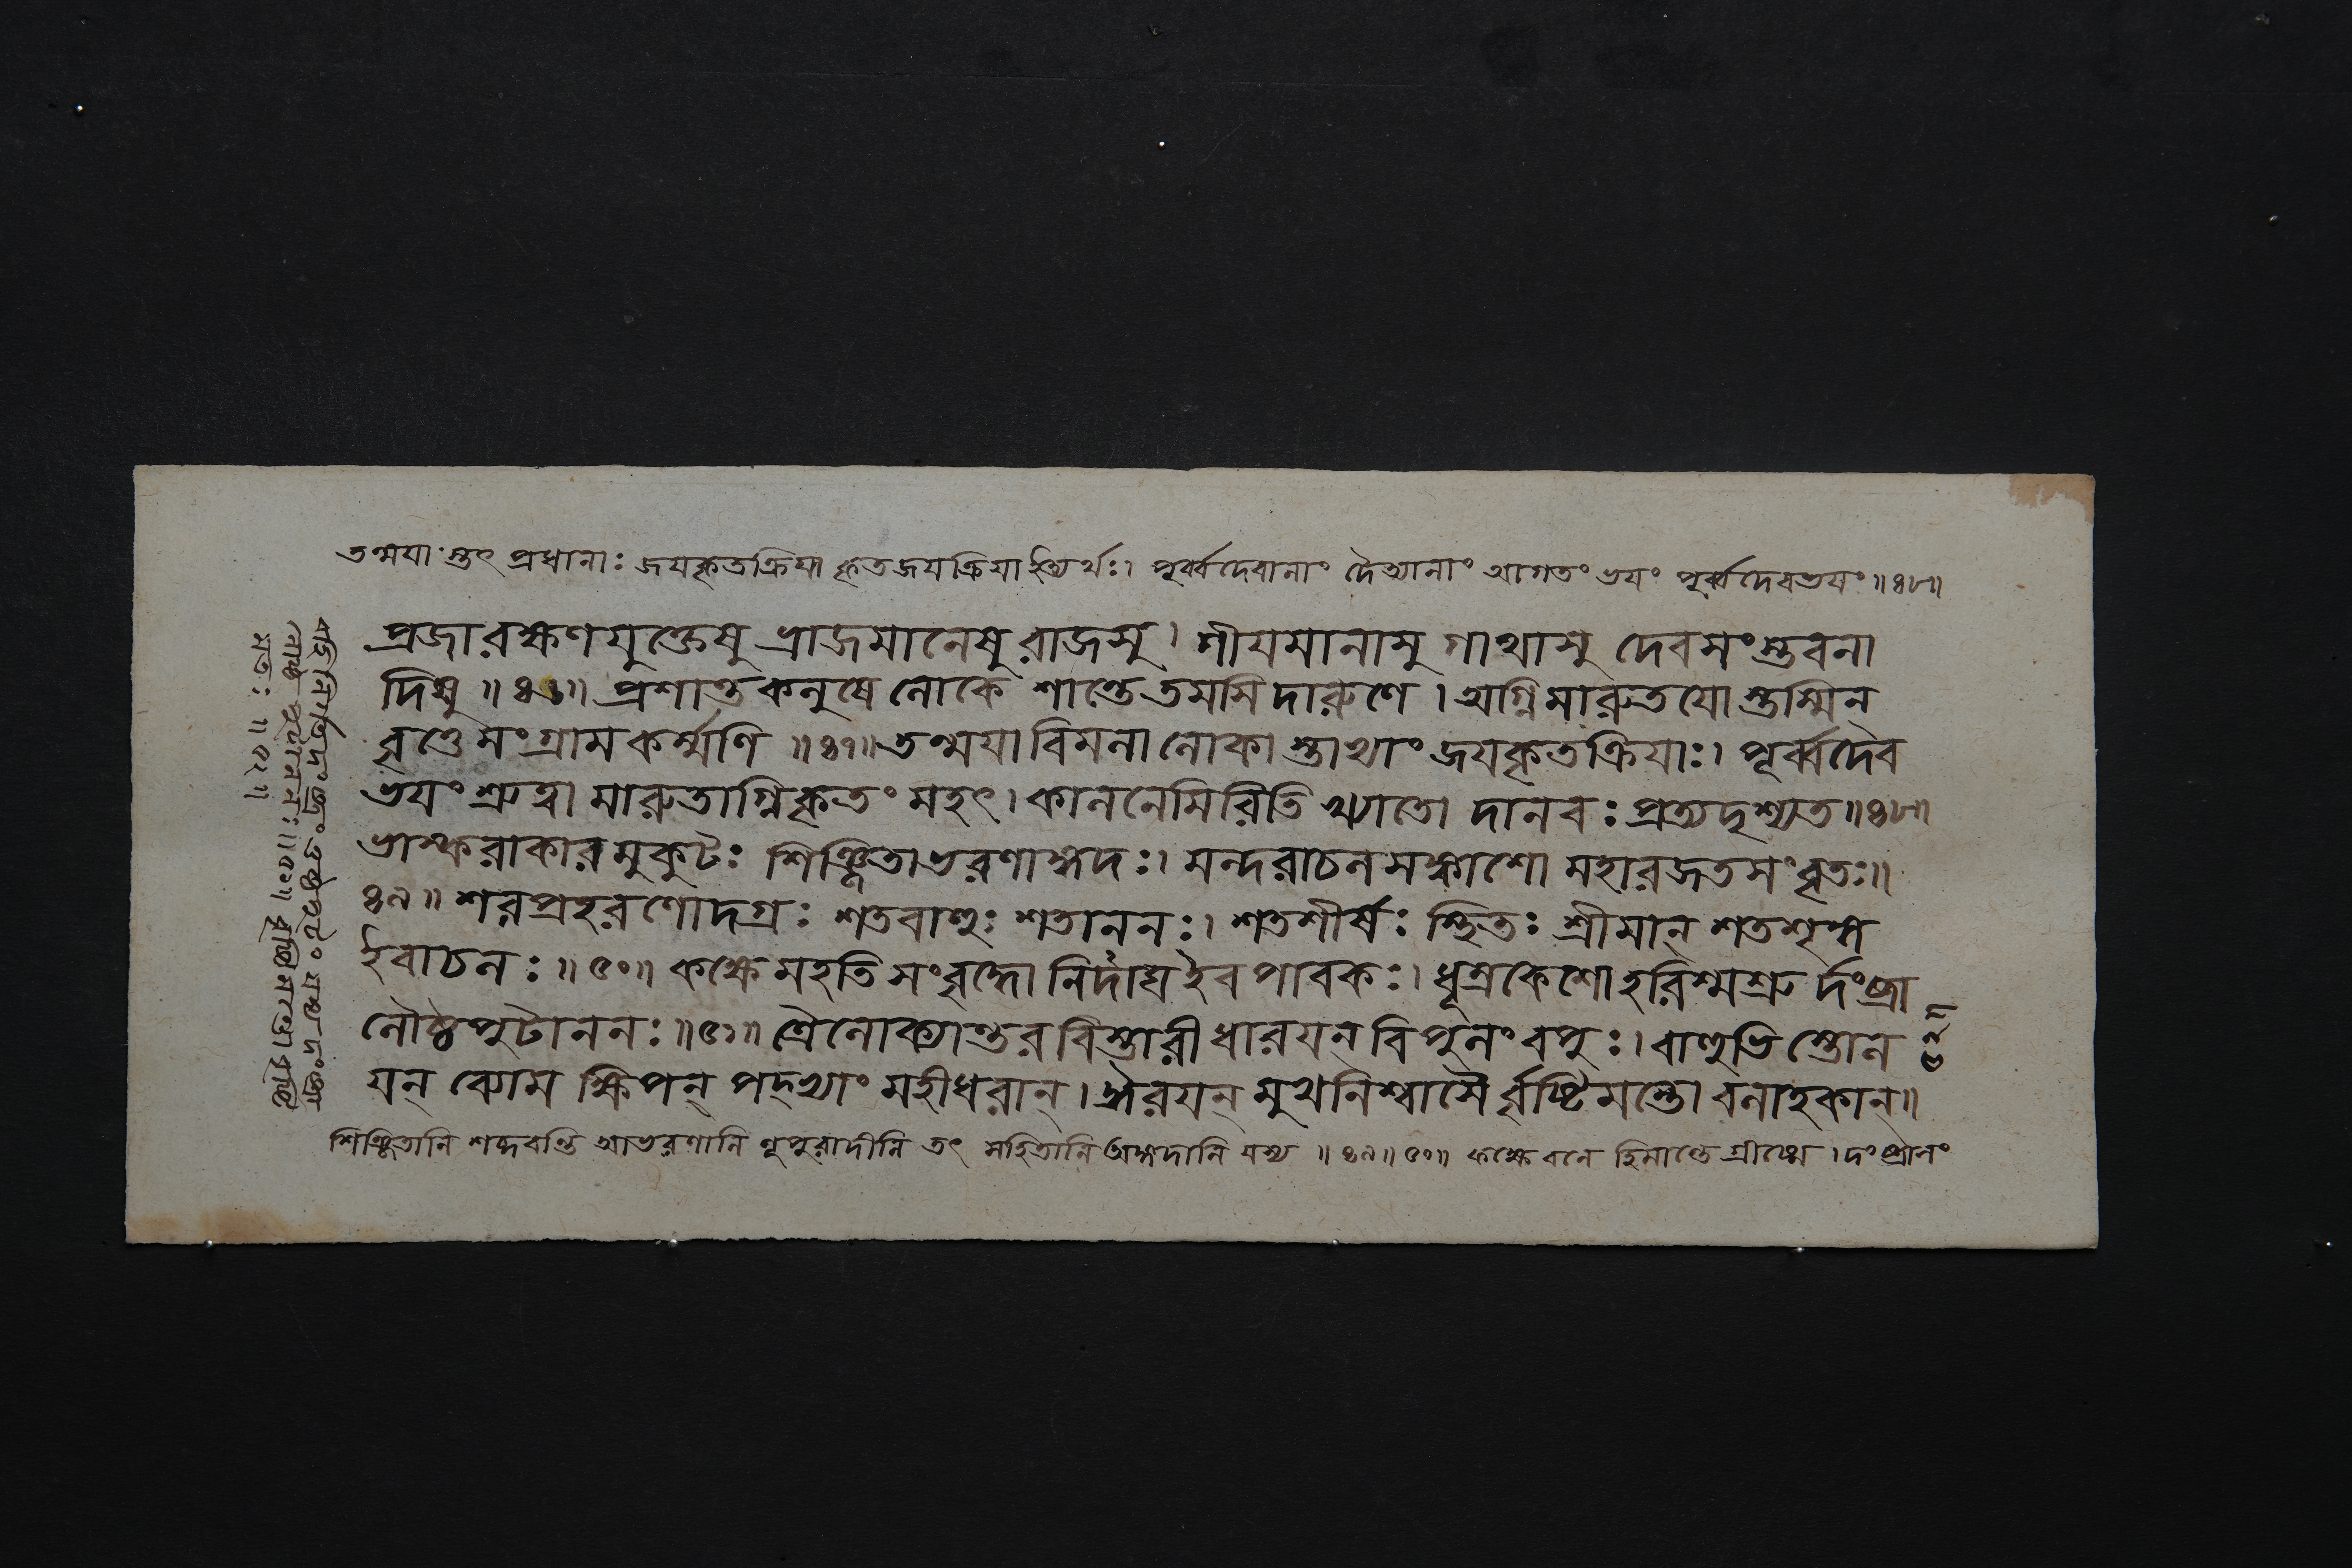 তন্ময়া স্তৎ প্রধানাঃ জয়কৃতক্রিয়া কৃতজয়ক্রিয়া ইত্যর্থঃ। পূর্ব্বদেবানাং দৈত্যানাং আগতং ভয়ং পূর্ব্বদেবভয়ং॥৪৮॥
প্রজারক্ষণযুক্তেষু ভ্রাজমানেষু রাজসু। গীয়মানাসু গাথাসু দেবসংস্তবনা
দিষু॥৪৬॥ প্রশান্তকলুষে লোকে শান্তে তমসি দারুণে। অগ্নিমারুতয়ো স্তস্মিন্
বৃত্তে সংগ্রামকর্ম্মণি॥৪৭॥ তন্ময়া বিমলা লোকা স্তাভ্যাং জয়কৃতক্রিয়াঃ। পূর্ব্বদেব
ভয়ং শ্রুত্বা মারুতাগ্নিকৃতং মহৎ। কালনেমিরিতি খ্যাতো দানবঃ প্রত্যদৃশ্যত॥৪৮॥
ভাস্করাকারমুকুটঃ শিঞ্জিতাভরণাঙ্গদঃ। মন্দরাচলসঙ্কাশো মহারজতসংবৃতঃ॥
৪৯॥ শরপ্রহরণোদগ্রঃ শতবাহুঃ শতাননঃ। শতশীর্ষঃ স্থিতঃ শ্রীমান্ শতশৃঙ্গ
ইবাচলঃ॥৫০॥ কক্ষে মহতি সংবৃদ্ধো নির্দাঘ ইব পাবকঃ। ধূম্রকেশো হরিশ্মশ্রু র্দংষ্ট্রা
লৌষ্ঠপুটাননঃ॥৫১॥ ত্রৈলোক্যান্তরবিস্তারী ধারয়ন্ বিপুলং বপুঃ। বাহুভি স্তোল
য়ন্ ব্যোম ক্ষিপন্ পদ্ভ্যাং মহীধরান্। ঈরয়ন্ মুখনিশ্বাসৈ র্বৃষ্টিমন্তো বলাহকান্॥
শিঞ্জিতানি শব্দবন্তি আভরণানি নূপুরাদীনি তৎ সহিতানি অঙ্গদানি যস্য॥৪৯॥৫০॥ কক্ষে বনে হিমান্তে গ্রীষ্মে। দংষ্ট্রালং
ওষ্ঠপুটং যস্য দংষ্ট্রা
লৌষ্ঠপুটাননঃ॥৫১॥